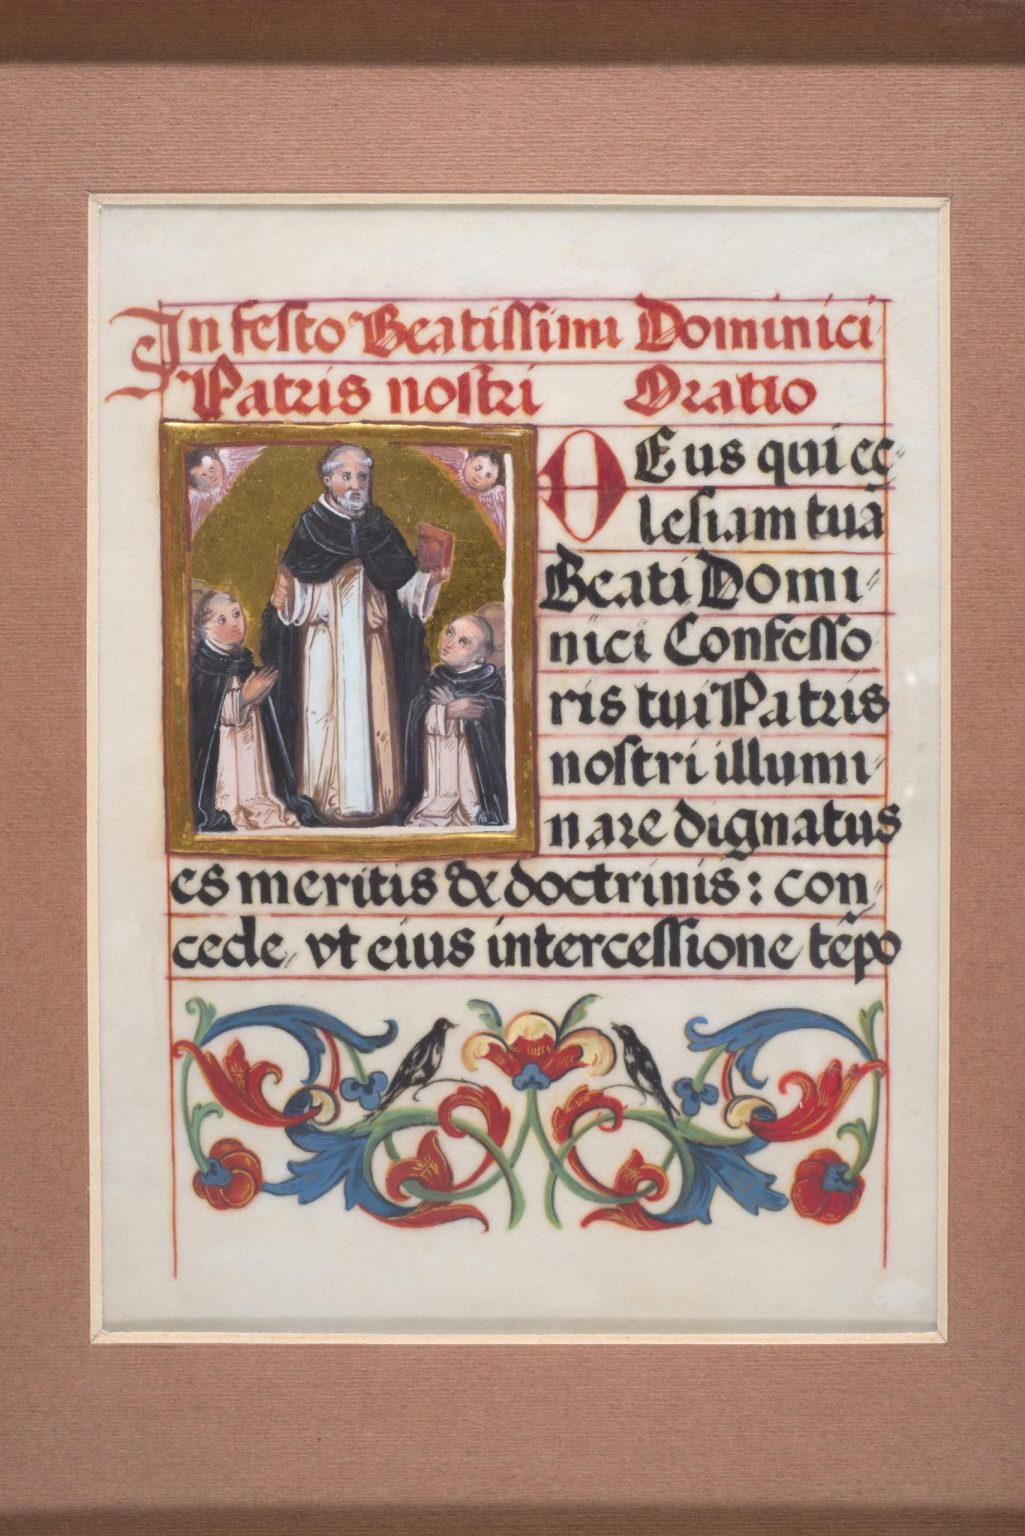 In festo Beatissimi Dominici
Patris nostri Oratio
DEus qui ec-
lesiam tuā
Beati Domi-
nici Confesso
ris tui Patris
nostri illumi-
nare dignatus
es meritis & doctrinis: con-
cede, vt eius intercessione tēpo